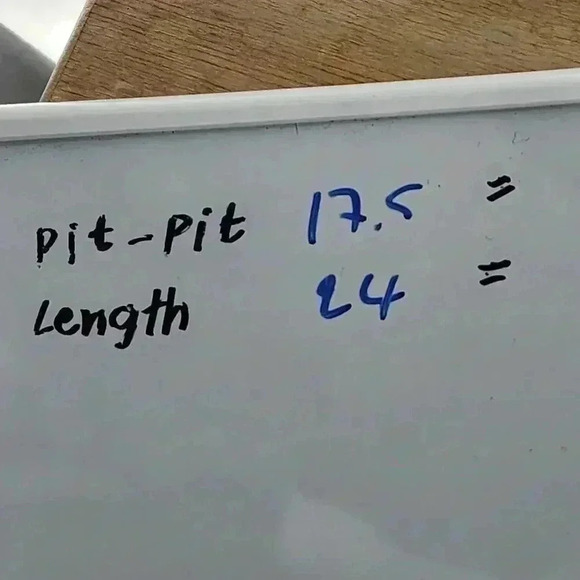 Pit-Pit 17.5 =
Length 24 =